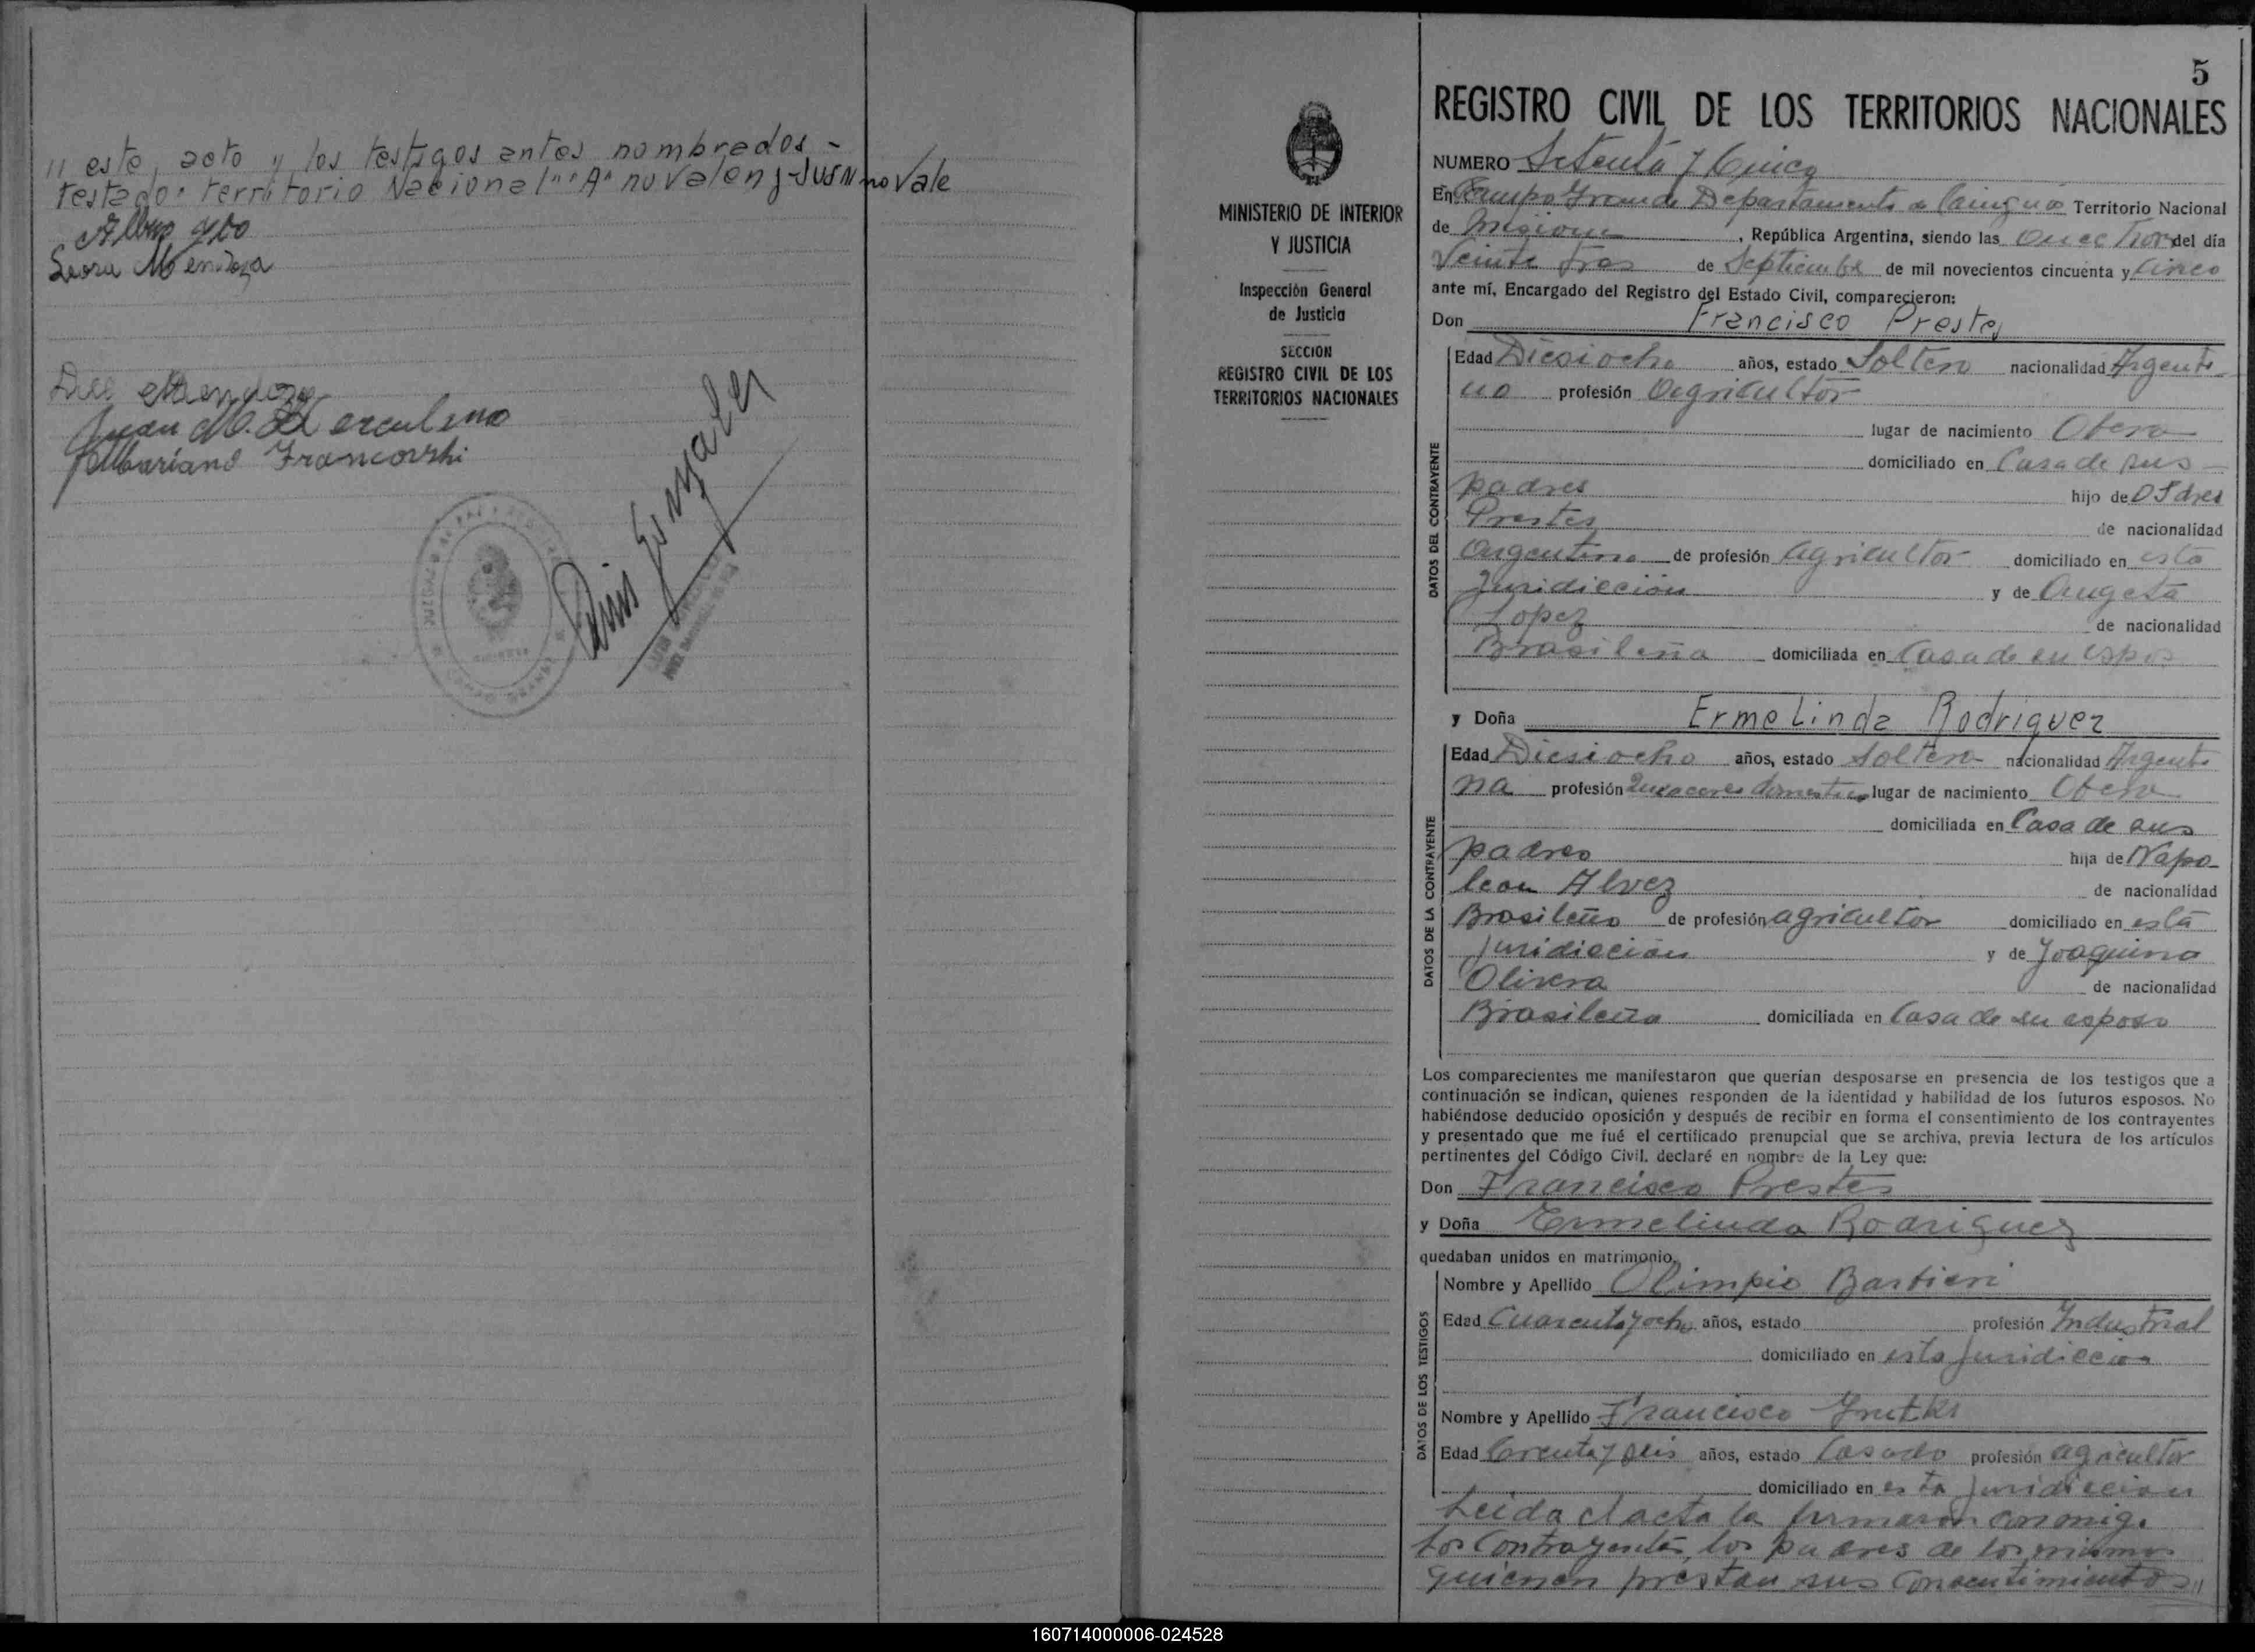 " este acto y los testigos antes nombrados -
Testado: territorio Nacional "A" no valen, no vale
Mendoza
Mendoza
Juan M. Herculano
Mariano Francovski
Luis Gonzalez
5
MINISTERIO DE INTERIOR
Y JUSTICIA
Inspección General
de Justicia
SECCION
REGISTRO CIVIL DE LOS
TERRITORIOS NACIONALES
REGISTRO CIVIL DE LOS TERRITORIOS NACIONALES
NUMERO Setenta y Cinco
En Campo Grande Departamento de Cainguás Territorio Nacional
de Misiones, República Argentina, siendo las Once horas del día
Veinte Tres de Septiembre de mil novecientos cincuenta y Cinco
ante mí, Encargado del Registro del Estado Civil, comparecieron:
Don Francisco Prestes
DATOS DEL CONTRAYENTE
Edad Diesiocho años, estado Soltero nacionalidad Argenti-
no profesión Agricultor
lugar de nacimiento Obera
domiciliado en Casa de sus
padres hijo de
Prestes de nacionalidad
Argentino de profesión Agricultor domiciliado en esta
Juridiccion y de
Lopez de nacionalidad
Brasileña domiciliada en Casa de su espos
y Doña Ermelinda Rodriguez
DATOS DE LA CONTRAYENTE
Edad Diesiocho años, estado Soltera nacionalidad Argenti
na profesión Quehaceres domesticos lugar de nacimiento Obera
domiciliada en Casa de sus
padres hija de Napo-
leon Alvez de nacionalidad
Brasileño de profesión agricultor domiciliado en esta
juridiccion y de Joaquina
Olivera de nacionalidad
Brasileña domiciliada en Casa de su esposo
Los comparecientes me manifestaron que querían desposarse en presencia de los testigos que a
continuación se indican, quienes responden de la identidad y habilidad de los futuros esposos. No
habiéndose deducido oposición y después de recibir en forma el consentimiento de los contrayentes
y presentado que me fué el certificado prenupcial que se archiva, previa lectura de los artículos
pertinentes del Código Civil. declaré en nombre de la Ley que:
Don Francisco Prestes
y Doña Ermelinda Rodriguez
quedaban unidos en matrimonio.
DATOS DE LOS TESTIGOS
Nombre y Apellido Olimpio Barbieri
Edad Cuarenta y ocho años, estado profesión Industrial
domiciliado en esta juridiccion
Nombre y Apellido Francisco
Edad años, estado Casado profesión agricultor
domiciliado en esta juridiccion
Leida el acta la firmaron conmigo
los contrayentes, los padres de los mismos
quienen prestan sus consentimientos "
160714000006-024528